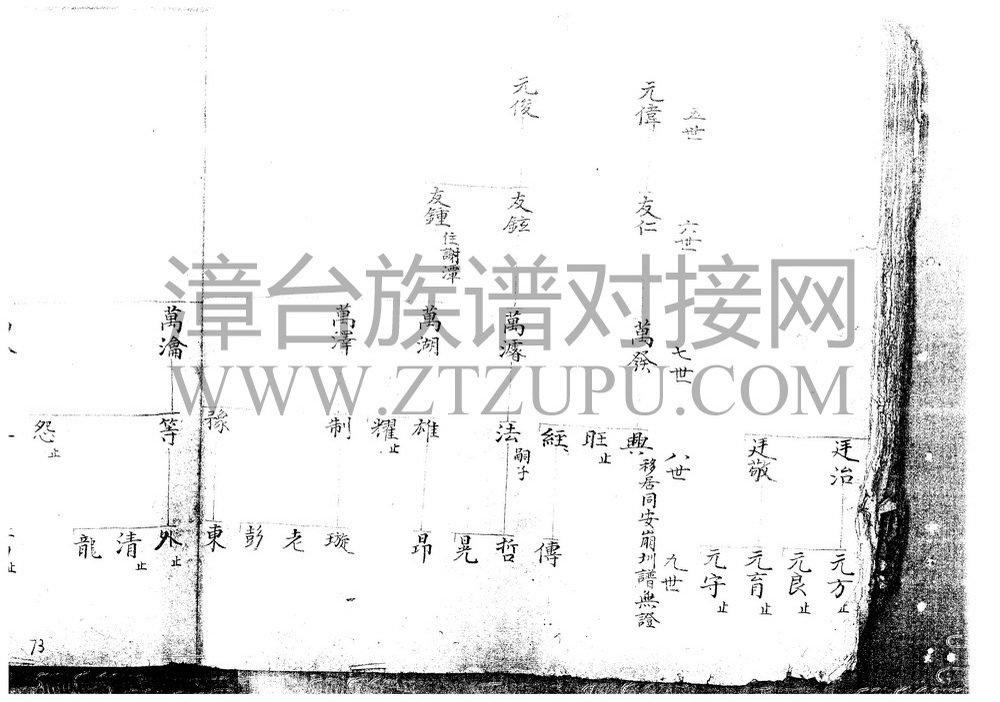 廷治
廷敬
元方
止
元良
止
元育
止
元宇
止
五世
六世
七世
八世
九世
元偉
友仁
萬發
興
移居同安崩圳譜無證
旺
止
經
傳
元俊
友鉉
友鍾
住謝潭
萬濬
法
嗣子
哲
晃
萬湖
雄
耀
止
昂
萬澤
制
璇
老
彭
豫
東
萬瀹
等
怨
止
外
止
清
止
龍
止
73
漳台族谱对接网
WWW.ZTZUPU.COM